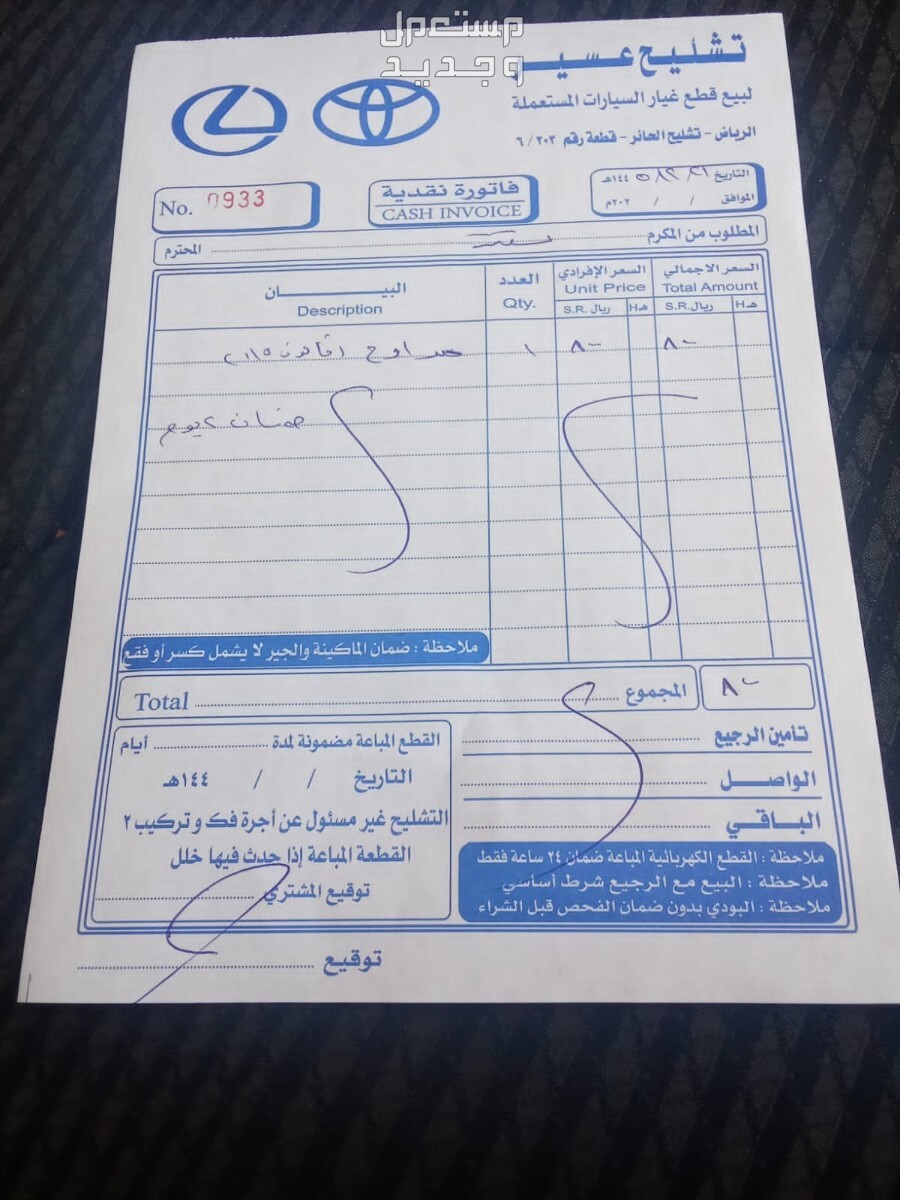 مستعمل
وجديد
تشليح عسير
لبيع قطع غيار السيارات المستعملة
الرياض - تشليح الحائر - قطعة رقم ٦/٢٠٣
التاريخ / / ١٤٤هـ
الموافق / / ٢٠٢م
فاتورة نقدية
CASH INVOICE
No. 0933
المطلوب من المكرم المحترم
السعر الاجمالي السعر الإفرادي العدد البيـــــان
Total Amount Unit Price Qty. Description
H هـ S.R. ريال H هـ S.R. ريال
٨٠ ٨٠ ١
ضمان ٢ يوم
ملاحظة : ضمان الماكينة والجير لا يشمل كسر أو فقع
٨٠ المجموع Total
تأمين الرجيع
الواصل
الباقي
ملاحظة : القطع الكهربائية المباعة ضمان ٢٤ ساعة فقط
ملاحظة : البيع مع الرجيع شرط أساسي
ملاحظة : البودي بدون ضمان الفحص قبل الشراء
القطع المباعة مضمونة لمدة أيام
التاريخ / / ١٤٤هـ
التشليح غير مسئول عن أجرة فك و تركيب ٢
القطعة المباعة إذا حدث فيها خلل
توقيع المشتري
توقيع